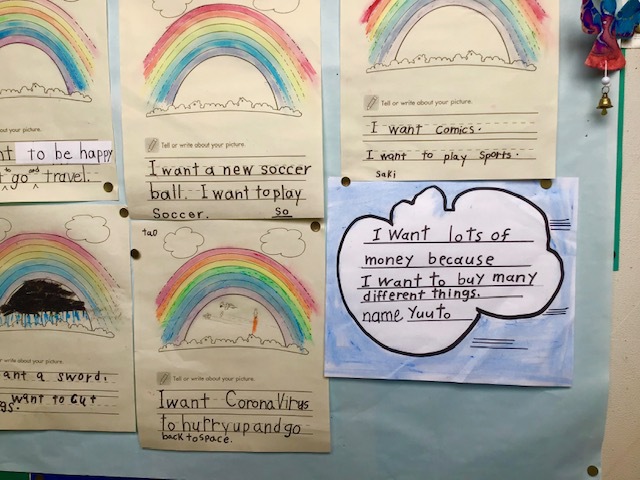 out your picture.
nt to be happy
to and
go travel.
Tell or write about your picture.
I want a new soccer
ball. I want to play
Soccer. So
Tell or write about your picture.
I want comics.
I want to play Sports.
Saki
or write about your picture.
ant a sword.
want to cut
gs.
tao
Tell or write about your picture.
I want CoronaVirus
to hurry up and go
back to space.
I want lots of
money because
I want to buy many
different things.
name Yuuto